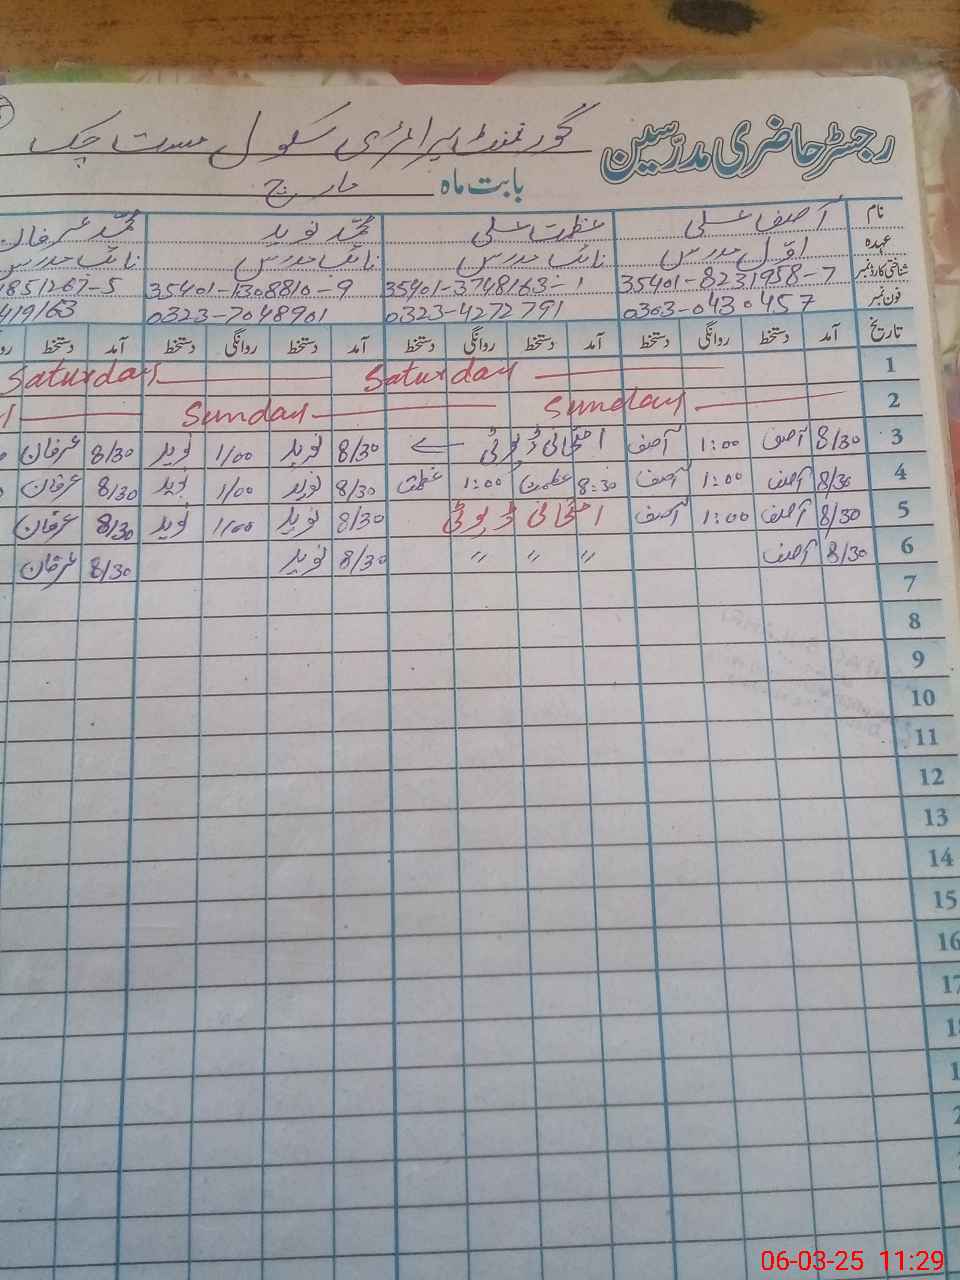 رجسٹر حاضری مدرسین گورنمنٹ پرائمری سکول مست چک
بابت ماہ مارچ
نام آصف علی عظمت علی محمد نوید محمد عرفان
عہدہ اوّل مدرس نائب مدرس نائب مدرس نائب مدرس
شناختی کارڈ نمبر 35401-8231958-7 35401-3748163-1 35401-1308810-9 1851267-5
فون نمبر 0303-0430457 0323-4272791 0323-7048901 419163
تاریخ آمد دستخط روانگی دستخط آمد دستخط روانگی دستخط آمد دستخط روانگی دستخط آمد دستخط
1 Saturday Saturday
2 Sunday Sunday
3 8/30 آصف 1:00 آصف امتحانی ڈیوٹی 8/30 نوید 1/00 نوید 8/30 عرفان
4 8/30 آصف 1:00 آصف 8:30 عظمت 1:00 عظمت 8/30 نوید 1/00 نوید 8/30 عرفان
5 8/30 آصف 1:00 آصف امتحانی ڈیوٹی 8/30 نوید 1/00 نوید 8/30 عرفان
6 8/30 آصف 〃 〃 〃 8/30 نوید 8/30 عرفان
7
8
9
10
11
12
13
14
15
16
17
06-03-25 11:29